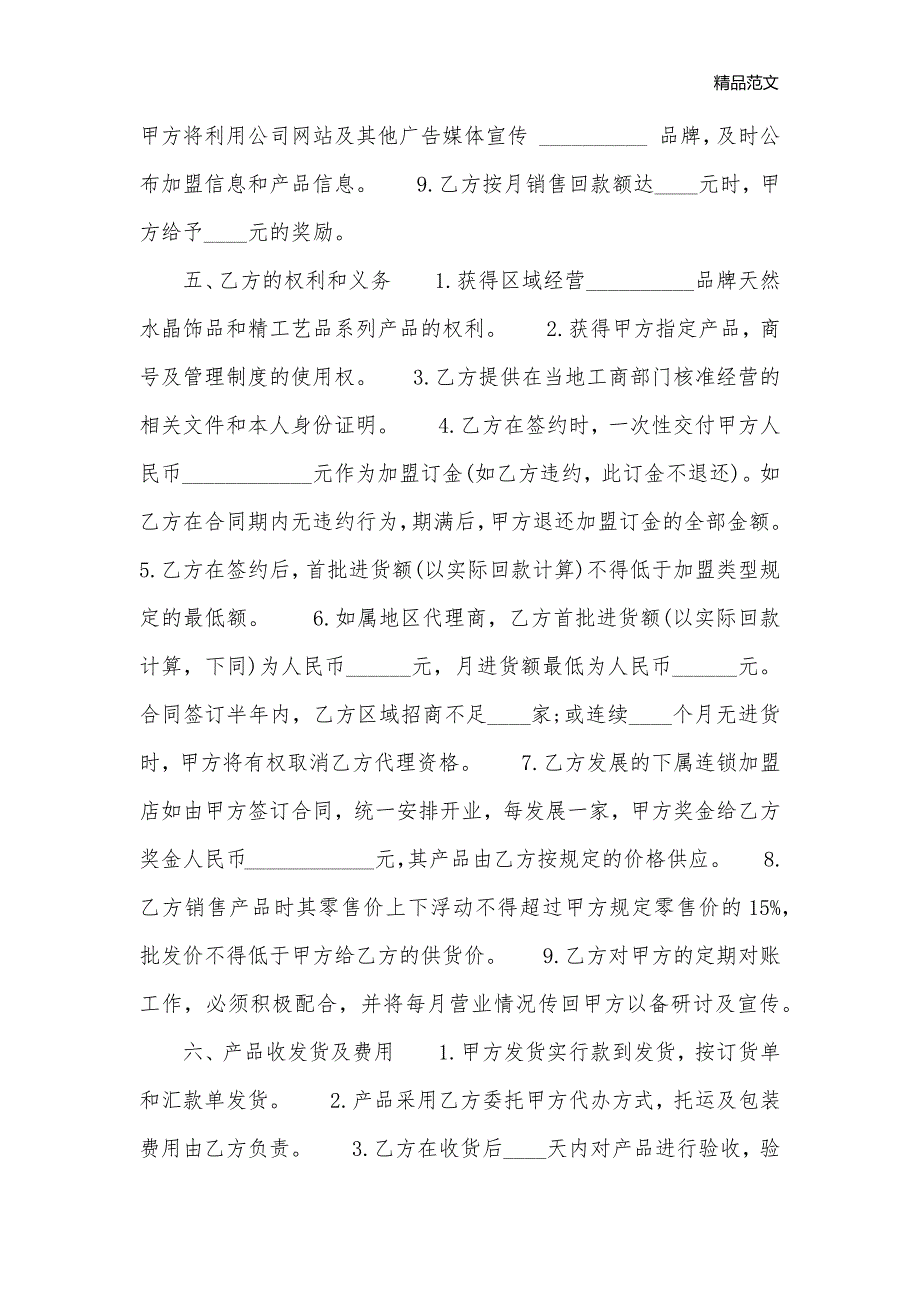 精品范文
甲方将利用公司网站及其他广告媒体宣传 __________ 品牌,及时公
布加盟信息和产品信息。　　9.乙方按月销售回款额达____元时,甲
方给予____元的奖励。
五、乙方的权利和义务　　1.获得区域经营__________品牌天然
水晶饰品和精工艺品系列产品的权利。　　2.获得甲方指定产品,商
号及管理制度的使用权。　　3.乙方提供在当地工商部门核准经营的
相关文件和本人身份证明。　　4.乙方在签约时,一次性交付甲方人
民币____________元作为加盟订金(如乙方违约,此订金不退还)。如
乙方在合同期内无违约行为,期满后,甲方退还加盟订金的全部金额。
5.乙方在签约后,首批进货额(以实际回款计算)不得低于加盟类型规
定的最低额。　　6.如属地区代理商,乙方首批进货额(以实际回款
计算,下同)为人民币______元,月进货额最低为人民币______元。
合同签订半年内,乙方区域招商不足____家;或连续____个月无进货
时,甲方将有权取消乙方代理资格。　　7.乙方发展的下属连锁加盟
店如由甲方签订合同,统一安排开业,每发展一家,甲方奖金给乙方
奖金人民币____________元,其产品由乙方按规定的价格供应。　　8.
乙方销售产品时其零售价上下浮动不得超过甲方规定零售价的15%,
批发价不得低于甲方给乙方的供货价。　　9.乙方对甲方的定期对账
工作,必须积极配合,并将每月营业情况传回甲方以备研讨及宣传。
六、产品收发货及费用　　1.甲方发货实行款到发货,按订货单
和汇款单发货。　　2.产品采用乙方委托甲方代办方式,托运及包装
费用由乙方负责。　　3.乙方在收货后____天内对产品进行验收,验